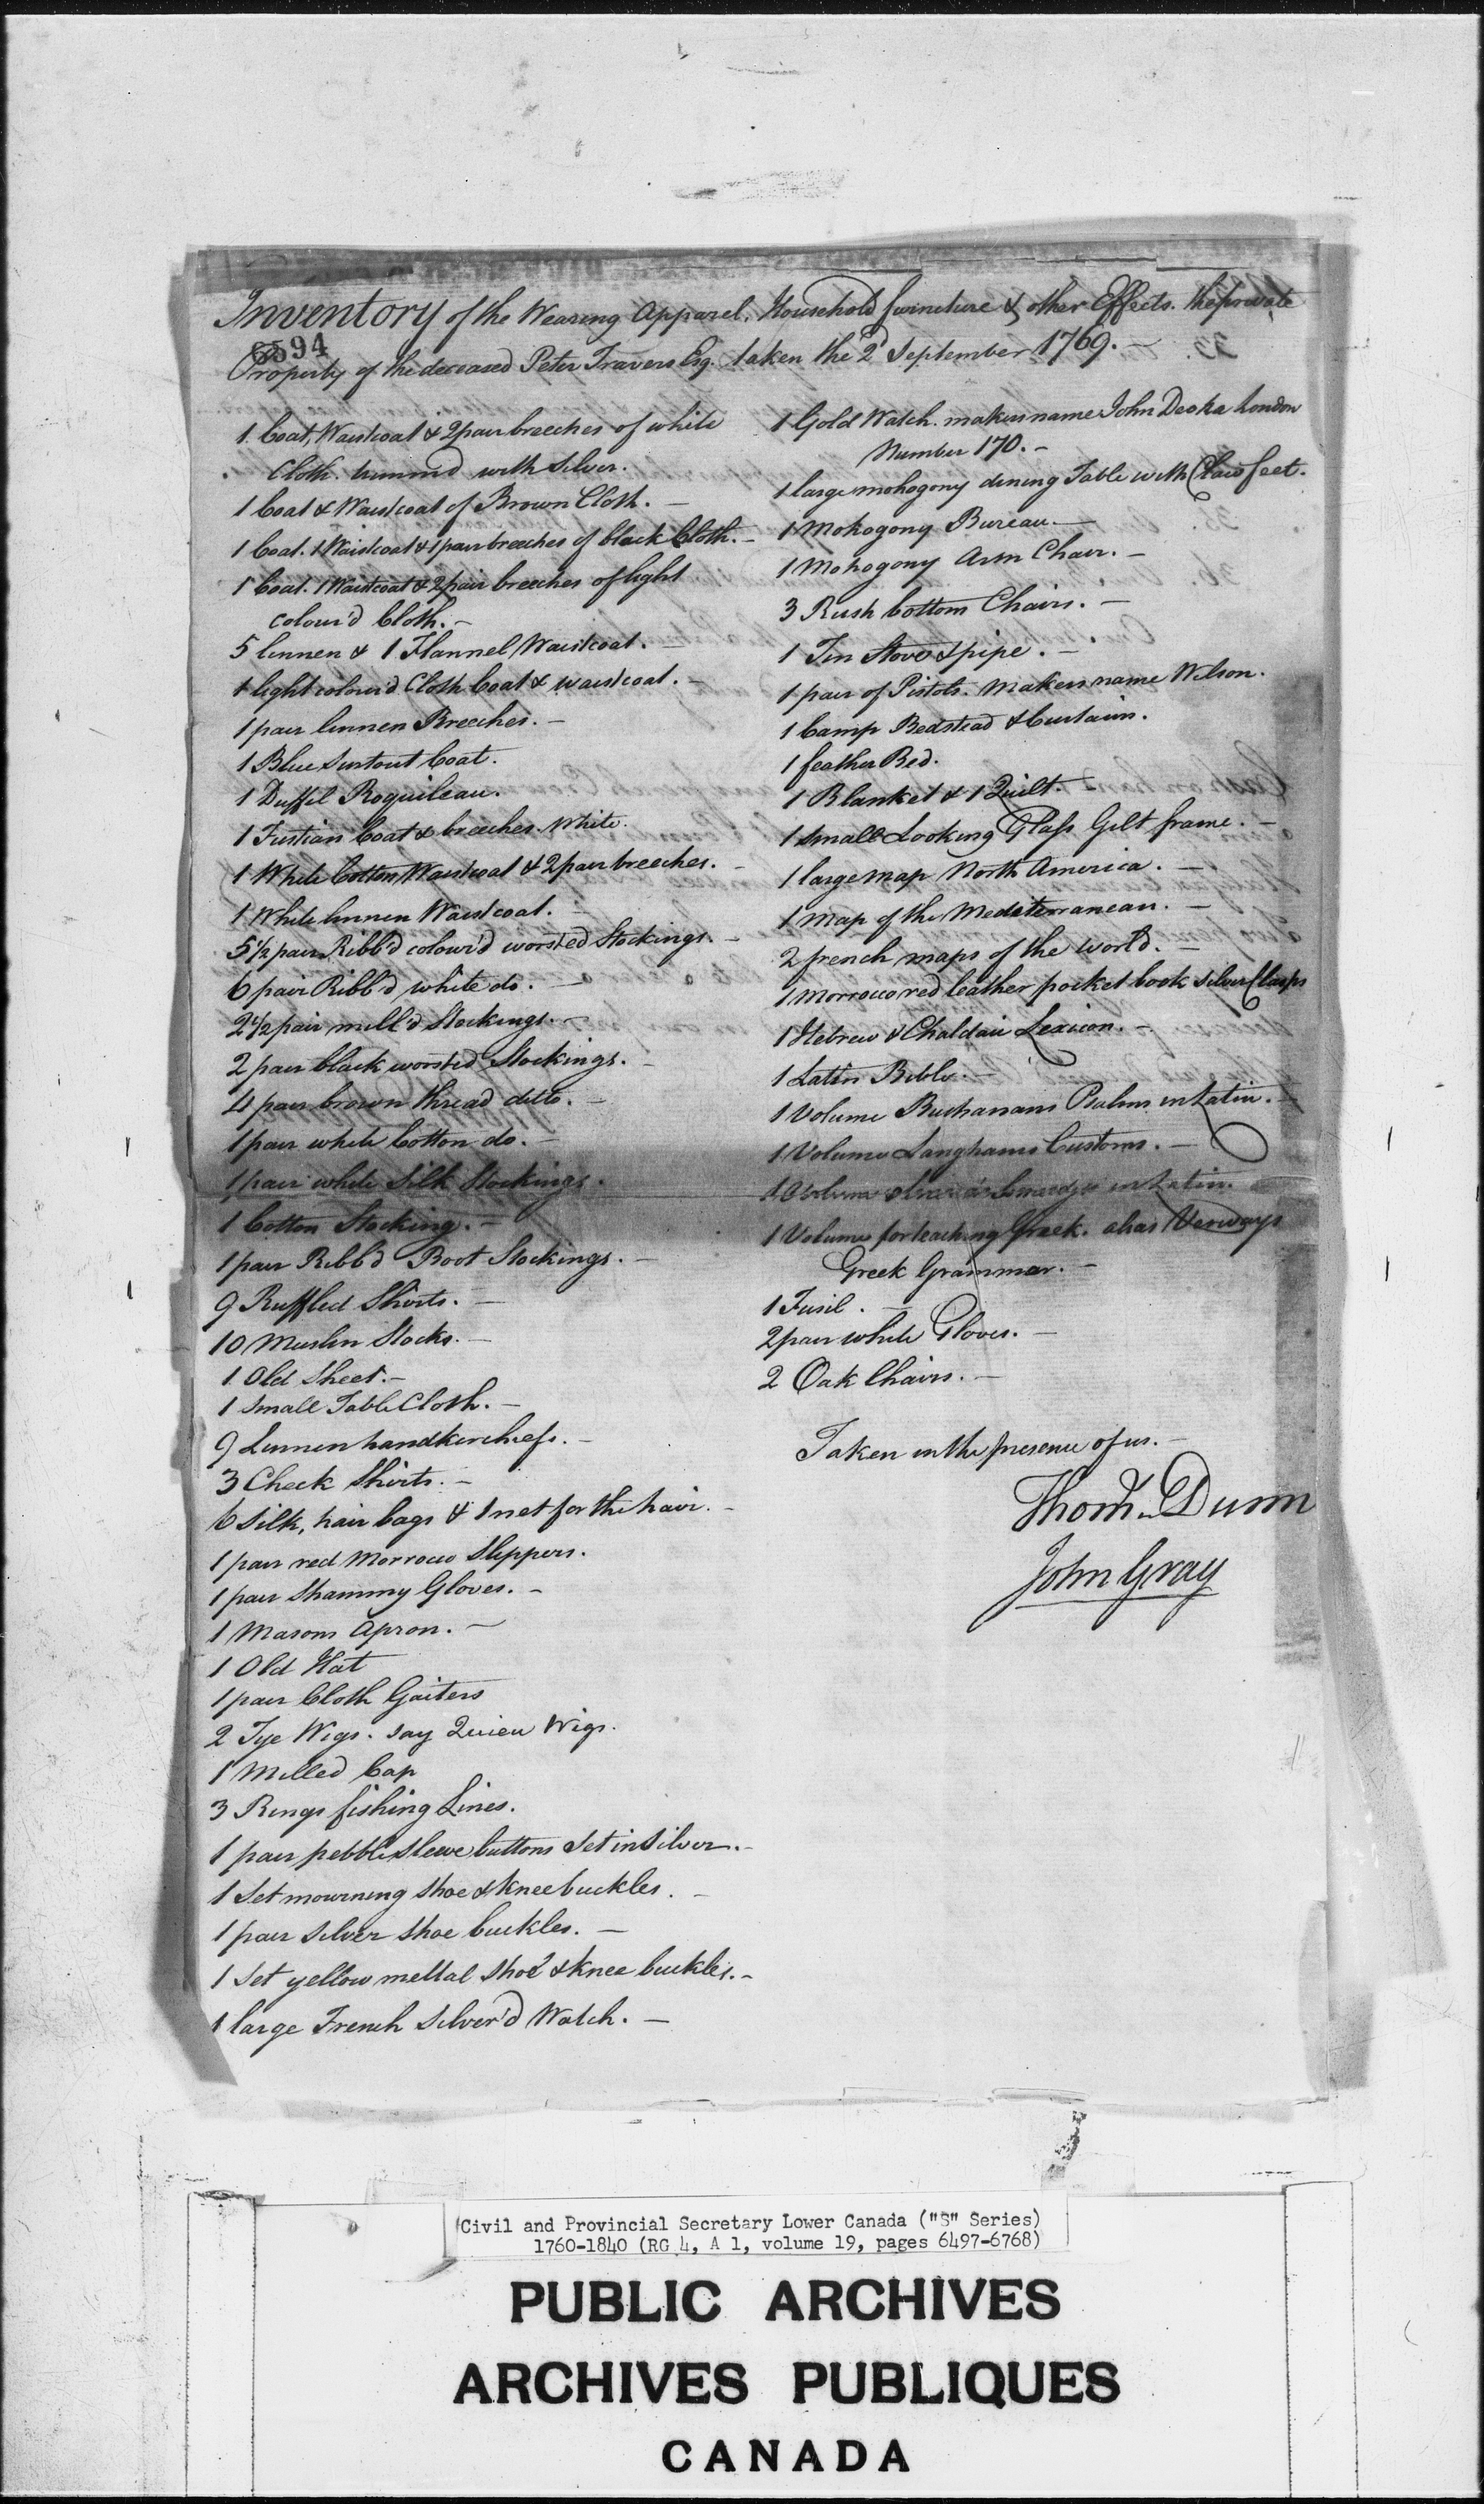 Inventory of the Wearing Apparel, Household furniture & other Effects. the private
6594
Property of the deceased Peter Travers Esq. taken the 2d September 1769. —
1 Coat, Waistcoat & 2 pair breeches of white
Cloth. trimm'd with silver.
1 Coat & Waistcoat of Brown Cloth. —
1 Coat. 1 Waistcoat & 1 pair breeches of black Cloth. —
1 Coat. 1 Waistcoat & 2 pair breeches of light
colour'd Cloth. —
5 linnen & 1 Flannel Waistcoat. —
1 light colour'd Cloth Coat & waistcoat. —
1 pair linnen Breeches. —
1 Blue Surtout Coat.
1 Duffil Roquileau.
1 Fustian Coat & breeches. White.
1 White Cotton Waistcoat & 2 pair breeches. —
1 White linnen Waistcoat. —
5 1/2 pair Ribb'd colour'd worsted Stockings. —
6 pair Ribb'd white do. —
2 1/2 pair mill'd Stockings. —
2 pair black worsted Stockings. —
4 pair brown thread ditto. —
1 pair white Cotton do. —
1 pair white Silk Stockings.
1 Cotton Stocking. —
1 pair Ribb'd Boot Stockings. —
9 Ruffled Shirts. —
10 Muslin Stocks. —
1 Old Sheet. —
1 Small Table Cloth. —
9 Linnen handkerchiefs. —
3 Check Shirts. —
6 Silk, hair bags & 1 net for the hair. —
1 pair red Morrocco Slippers.
1 pair Shammy Gloves. —
1 Masons Apron. —
1 Old Hat
1 pair Cloth Gaiters
2 Tye Wigs. say Quieu Wigs.
1 Milled Cap
3 Rings fishing Lines.
1 pair pebble sleeve buttons Set in Silver. —
1 Set mourning shoe & knee buckles. —
1 pair Silver shoe buckles. —
1 Set yellow mettal shoe & knee buckles. —
1 large French Silver'd Watch. —
1 Gold Watch. makers name John Deoka London
Number 170. —
1 large mohogony dining Table with Claw feet.
1 Mohogony Bureau. —
1 Mohogony Arm Chair. —
3 Rush bottom Chairs. —
1 Tin Stove & pipe. —
1 pair of Pistols. Makers name Wilson.
1 Camp Bedstead & Curtains.
1 feather Bed.
1 Blanket & 1 Quilt.
1 small Looking Glass Gilt frame. —
1 large map North America. —
1 Map of the Mediterranean. —
2 french maps of the world. —
1 Morrocco red leather pocket book silver Clasps
1 Hebrew & Chaldaic Lexicon. —
1 Latin Bible. —
1 Volume Buchanans Psalms in Latin. —
1 Volume Langhams Customs. —
1 Volume in Latin.
1 Volume for teaching Greek. alias Verways
Greek Grammar. —
1 Fusil. —
2 pair white Gloves. —
2 Oak Chairs. —
Taken in the presence of us. —
Thom. Dunn
John Gray
Civil and Provincial Secretary Lower Canada ("S" Series)
1760-1840 (RG 4, A 1, volume 19, pages 6497-6768)
PUBLIC ARCHIVES
ARCHIVES PUBLIQUES
CANADA